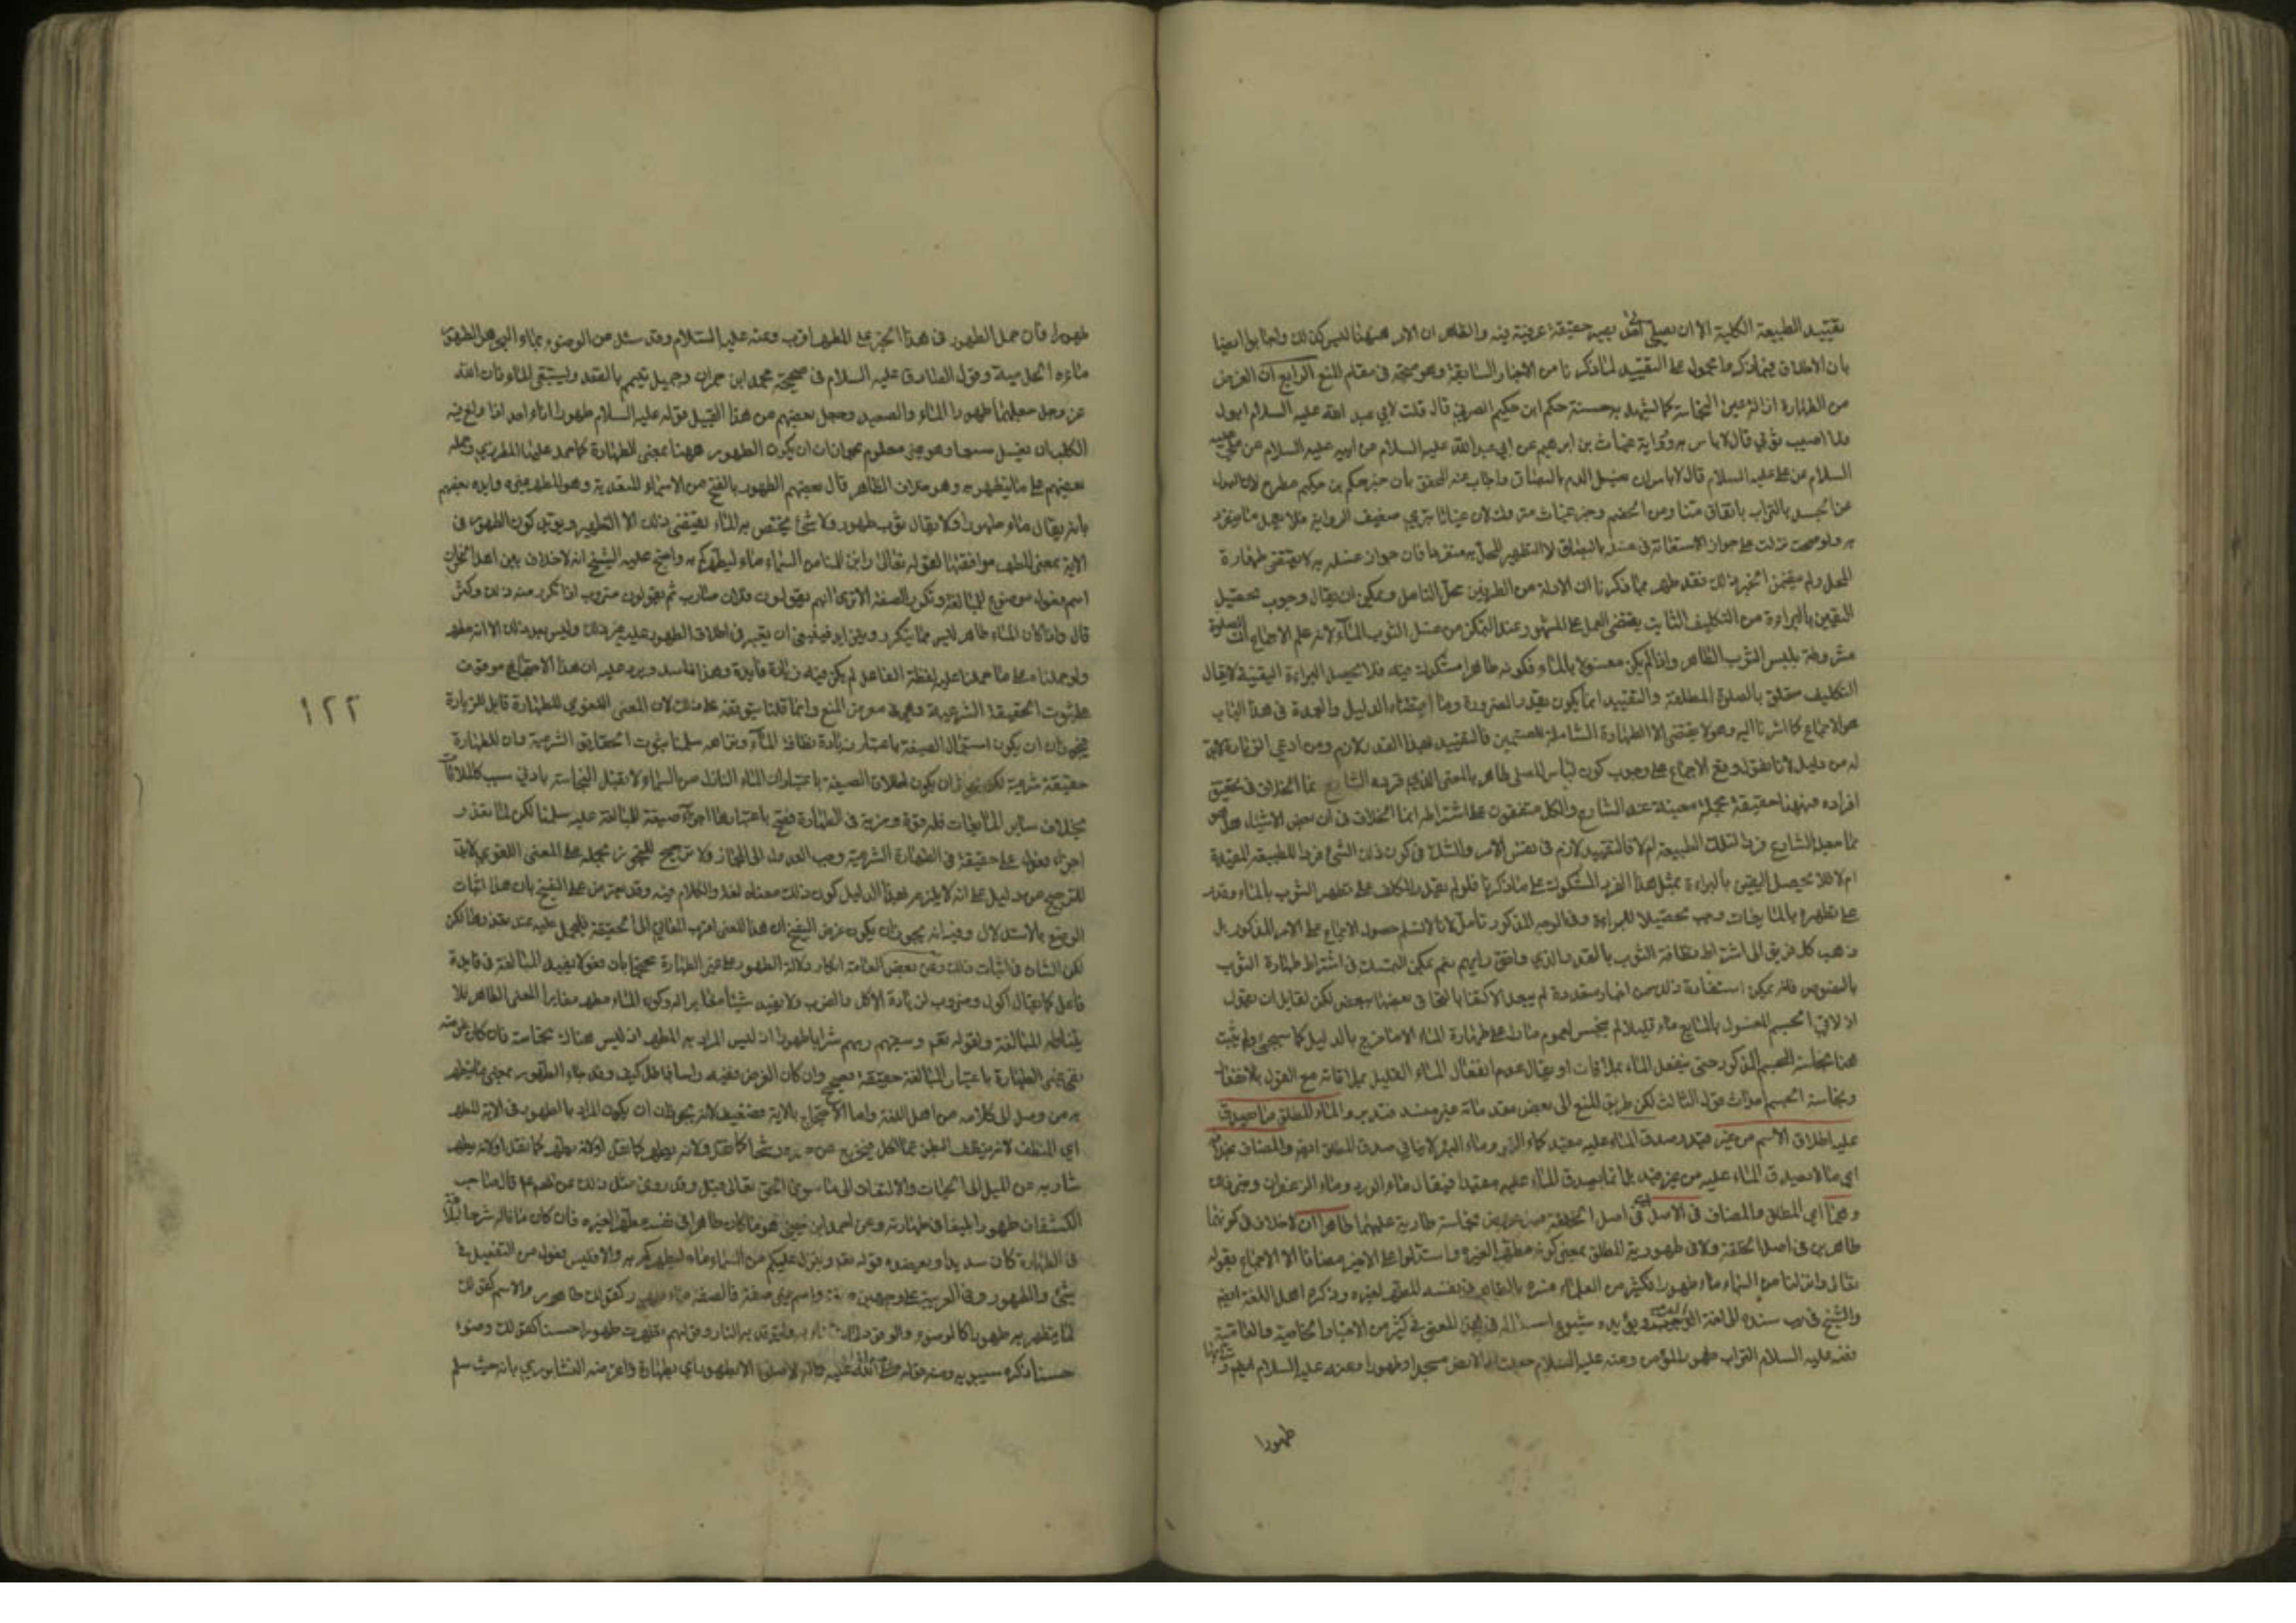 تقييد الطبيعة الكلية الا ان يصير حقيقة عرفية فيه والظاهر ان الامر ههنا ليس كذلك واجابوا ايضا
بان الاطلاق فيما ذكر محمول على التقييد لما ذكرنا من الاخبار السابقة وهو متجه في مقام المنع الرابع ان الغرض
من الطهارة ازالة عين النجاسة كما يشهد به حسنة حكم ابن حكيم الصيرفي قال قلت لابي عبد الله عليه السلام ابول
فلا اصيب قال لا باس به ورواية غياث بن ابرهيم عن ابي عبد الله عليه السلام عن ابيه عليه السلام عن علي عليه
السلام قال لا باس ان يغسل الدم بالبصاق واجاب عنه المحقق بان خبر حكم بن حكيم مطرح لان البول
عن الجسد بالتراب باتفاق منا ومن الخصم وخبر غياث متروك لان غياثا بتري ضعيف الرواية فلا يعمل ما ينفرد
به ولو صحت نزلت على جواز الاستعانة في غسله بالبصاق لا لتطهير المحل به منفردا فان جواز غسله به لا يقتضي طهارة
المحل ولم يتضمن الخبر ذلك فقد ظهر مما ذكرنا ان الادلة من الطرفين محل التامل ويمكن ان يقال وجوب تحصيل
اليقين بالبراءة من التكليف الثابت يقتضي العمل على المشهور عند التمكن من غسل الثوب بالماء لانه علم الاجماع ان الصلوة
مشروطة بلبس الثوب الطاهر واذا لم يكن مغسولا بالماء فكونه طاهرا مشكوك فيه فلا يحصل البراءة اليقينية لا يقال
التكليف متعلق بالصلوة المطلقة والتقييد انما يكون بقدر الضرورة وما اقتضاه الدليل والعمدة في هذا الباب
هو الاجماع كما اشرنا اليه وهو لا يقتضي الا الطهارة الشاملة للقسمين فالتقييد بهذا القدر لازم ومن ادعى الزيادة لا بد
له من دليل لانا نقول وقع الاجماع على وجوب كون لباس المصلي طاهرا بالمعنى الذي قرره الشارع انما الخلاف في تحقيق
افراده فههنا حقيقة مجملة معينة عند الشارع والكل متفقون على اشتراطه انما الخلاف في ان بعض الاشياء هل هو
مما جعل الشارع فردا لتلك الطبيعة ام لا فالتقييد لازم في نفس الامر والشك في كون ذلك الشئ فردا للطبيعة المقيدة
ام لا فلا يحصل اليقين بالبراءة بمثل هذا الفرد المشكوك على ما ذكرنا فلو لم يقدر المكلف على تطهير الثوب بالماء وقدر
على تطهيره بالمايعات وجب تحصيلا للبراءة وفي الوجه المذكور تامل لانا لا نسلم حصول الاجماع على الامر المذكور بل
ذهب كل فريق الى اشتراط نظافة الثوب بالقدر الذي وافق رايهم نعم يمكن التمسك في اشتراط طهارة الثوب
بالنصوص فانه يمكن استفادة ذلك من اخبار متعددة لم يبعد الاكتفا بالتحا في بعضها ببعض لكن لقايل ان يقول
اذ لاقي الجسم المغسول بالمايع ماء قليلا لم ينجس لعموم ما دل على طهارة الماء الا ما خرج بالدليل كما سيجئ ولم يثبت
ههنا نجاسة الجسم المذكور حتى ينفعل الماء بملاقاته او يقال عدم انفعال الماء القليل بملاقاته مع القول
ونجاسة الجسم احداث قول الثالث لكن طريق المنع الى بعض مقدماته غير منسد فتدبر والماء المطلق ما صدق
عليه اطلاق الاسم من غير قيد وصدق الماء عليه مقيدا كماء النهر وماء البئر لا ينافي صدق المطلق ايضا والمضاف بخلافه
اي ما لا يصدق الماء عليه من غير قيد بل انما يصدق الماء عليه مقيدا فيقال ماء الورد وماء الزعفران وغير ذلك
وهما اي المطلق والمضاف في الاصل اي في اصل الخلقة من دون عروض نجاسة طارية عليهما طاهران لا خلاف في كونهما
طاهرين في اصل الخلقة ولا في طهورية المطلق بمعنى كونه مطهرا لغيره واستدلوا على الاخير مضافا الى الاجماع بقوله
تعالى وانزلنا من السماء ماء طهورا فكثير من العلماء فسره بالطاهر في نفسه المطهر لغيره وذكره اهل اللغة ايضا
والشيخ في يب سنده الى لغة العرب ويؤيده شيوع استعماله في هذا المعنى في كثير من الاخبار الخاصية والعامية
فعنه عليه السلام التراب طهور المؤمن وعنه عليه السلام جعلت لي الارض مسجدا وطهورا وعنه عليه السلام ايضا وترابها
طهورا
طهورا فان حمل الطهور في هذا الخبر على المطهر اقرب وعنه عليه السلام وقد سئل عن الوضوء بماء البحر هو الطهور
ماءه الحل ميتة وقول الصادق عليه السلام في صحيحة محمد ابن حمران وجميل تيمم بالصعيد وليستبقي الماء فان الله
عز وجل جعلهما طهورا الماء والصعيد وجعل بعضهم من هذا القبيل قوله عليه السلام طهور اناء احدكم اذا ولغ فيه
الكلب ان يغسل سبعا وهو غير معلوم بجواز ان يكون الطهور ههنا بمعنى الطهارة كما صرح علينا المطرزي وحمله
بعضهم على ما يتطهر به وهو خلاف الظاهر قال بعضهم الطهور بالفتح من الاسماء المتعدية وهو المطهر غيره وايده بعضهم
بانه يقال ماء طهور ولا يقال ثوب طهور ولا شئ يختص به الماء يقتضي ذلك الا التطهير ويؤيد كون الطهور في
الاية بمعنى المطهر موافقتها لقوله تعالى وانزلنا من السماء ماء ليطهركم به واحتج عليه الشيخ انه لا خلاف بين اهل النحو ان
اسم فعول موضوع للمبالغة وتكرر الصفة الا ترى انهم يقولون فلان ضارب ثم يقولون ضروب اذا تكرر منه ذلك وكثر
قال واذا كان الماء طاهرا ليس مما يتكرر ويتزايد فينبغي ان يعتبر في اطلاق الطهور عليه غير ذلك وليس بعد ذلك الا انه مطهر
ولو حملناه على ما حملنا عليه لفظة الفاعل لم يكن فيه زيادة فايدة وهذا فاسد ويرد عليه ان هذا الاحتجاج موقوف
على ثبوت الحقيقة الشرعية وهي في معرض المنع وانما قلنا بتوقفه على ذلك لان المعنى اللغوي للطهارة قابل للزيادة
فيجوز ان يكون استعمال الصيغة باعتبار زيادة نظافة الماء ونزاهته سلمنا ثبوت الحقايق الشرعية وان للطهارة
حقيقة شرعية لكن يجوز ان يكون اطلاق الصيغة باعتبار ان الماء النازل من السماء لا يقبل النجاسة بادنى سبب كالملاقات
بخلاف ساير المايعات فله قوة ومزية في الطهارة فصح باعتبارها اجراء صيغة المبالغة عليه سلمنا لكن لما تعذر
اجراء فعول على حقيقة في الطهارة الشرعية وجب العدول الى المجاز ولا ترجيح للتجوز بحمله على المعنى اللغوي لا بد
للترجيح من دليل على انه لا يلزم من هذا الدليل كون ذلك معناه لغة والكلام فيه وقد يعترض على الشيخ بان هذا اثبات
الوضع بالاستدلال وفيه انه يجوز ان يكون غرض الشيخ ان هذا المعنى اقرب المعاني الى الحقيقة فليحمل عليه عند تعذرها لكن
لكن الشان في اثبات ذلك وعن بعض العامة انكار دلالة الطهور على غير الطهارة محتجا بان فعولا يفيد المبالغة في فايدة
فاعل كما يقال اكول وضروب لزيادة الاكل والضرب ولا يفيد شيئا مغايرا له وكون الماء مطهرا مغاير المعنى الطاهر فلا
يتناوله المبالغة ولقوله تعالى وسقيهم ربهم شرابا طهورا اذ ليس المراد به المطهر اذ ليس هناك نجاسة
بمعنى الطهارة باعتبار المبالغة حقيقة صحيح وان كان الغرض تفيده كيف وقد جاء الطهور بمعنى ما يتطهر
به من وصل الى كلامه من اهل اللغة واما الاحتجاج بالاية فضعيف لانه يجوز ان يكون المراد بالطهور في الاية المطهر
اي المنظف لانه ينظف البطن عما اكل فيخرج من بدنه رشحا كما نقل ولانه يطهر كما نقل او لانه يطهر
شاربه عن الميل الى الخسات والالتفات الى ما سوى الحق تعالى وقد روى مثل ذلك قال صاحب
الكشاف طهورا بليغا في طهارته وعن احمد ابن يحيى هو ما كان طاهرا في نفسه مطهرا لغيره فان كان ما قاله شرحا لبلاغته
في الطهارة كان سديدا ويعضده قوله تعالى وينزل عليكم من السماء ماء ليطهركم به والا فليس فعول من التفعيل في
شئ والطهور في العربية على وجهين صفة واسم غير صفة فالصفة ماء طهور كقولك طاهر والاسم كقولك
لما يتطهر به طهور كالوضوء والوقود لما يتوضا به ويتوقد به النار وقولهم تطهرت طهورا حسنا كقولك وضوءا
حسنا ذكره سيبويه ومنه قوله صلى الله عليه واله لا صلوة الا بطهور اي بطهارة واعترضه النيشابوري بانه حيث سلم
١٢٢